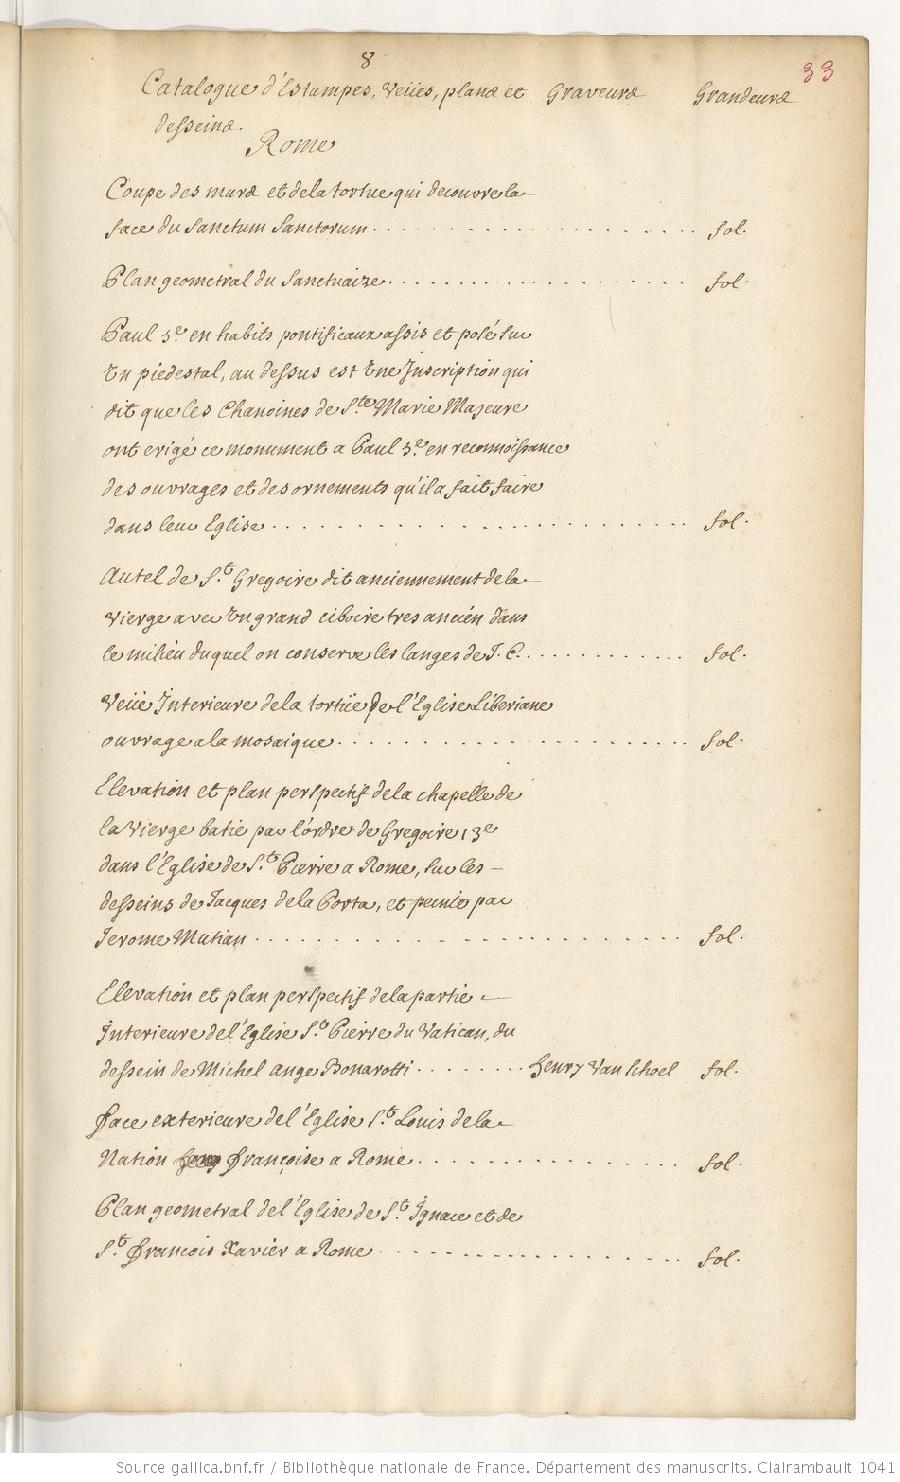 8
33
Catalogue d'Estampes, Veües, plans et Graveurs Grandeurs
desseins.
Rome
Coupe des murs et de la tortue qui decouvre la
face du Sanctum Sanctorum . . . . . . . . . . fol.
Plan geometral du Sanctuaire . . . . . . . . . . fol.
Paul 5.e en habits pontificaux assis et posé sur
Un piedestal, au dessus est Une Inscription qui
dit que les Chanoines de S.te Marie Majeure
ont erigé ce monument a Paul 5.e en reconnoissance
des ouvrages et des ornements qu'il a fait faire
dans leur Eglise . . . . . . . . . . fol.
Autel de S.t Gregoire dit anciennement de la
Vierge avec Un grand ciboire tres ancién dans
le miliéu duquel on conserve les langes de J. C. . . . . . . . . . . fol.
Veüe Interieure de la tortüe de l'Eglise Liberiane
ouvrage a la mosaique . . . . . . . . . . fol.
Elevation et plan perspectif de la chapelle de
la Vierge batie par l'ordre de Gregoire 13e
dans l'Eglise de S.t Pierre a Rome, sur les
desseins de Jacques de la Porta, et peinte par
Jerome Mutian . . . . . . . . . . fol.
Elevation et plan perspectif de la partie
Interieure de l'Eglise S.t Pierre du Vatican, du
dessein de Michel ange Bonarotti . . . . . . . . Henry Van Schoel fol.
Face exterieure de l'Eglise S.t Louis de la
Nation Françoise a Rome . . . . . . . . . . fol.
Plan geometral de l'Eglise de S.t Ignace et de
S.t François Xavier a Rome . . . . . . . . . . fol.
Source gallica.bnf.fr / Bibliothèque nationale de France. Département des manuscrits. Clairambault 1041